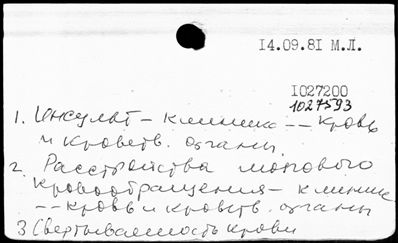 14.09.81 М.Л.
1027200
1027593
1. Инсульт - клиника -- кровь
и кроветв. органы.
2. Расстройства мозгового
кровообращения - клиника
-- кровь и кроветв. органы
3 Свертываемость крови